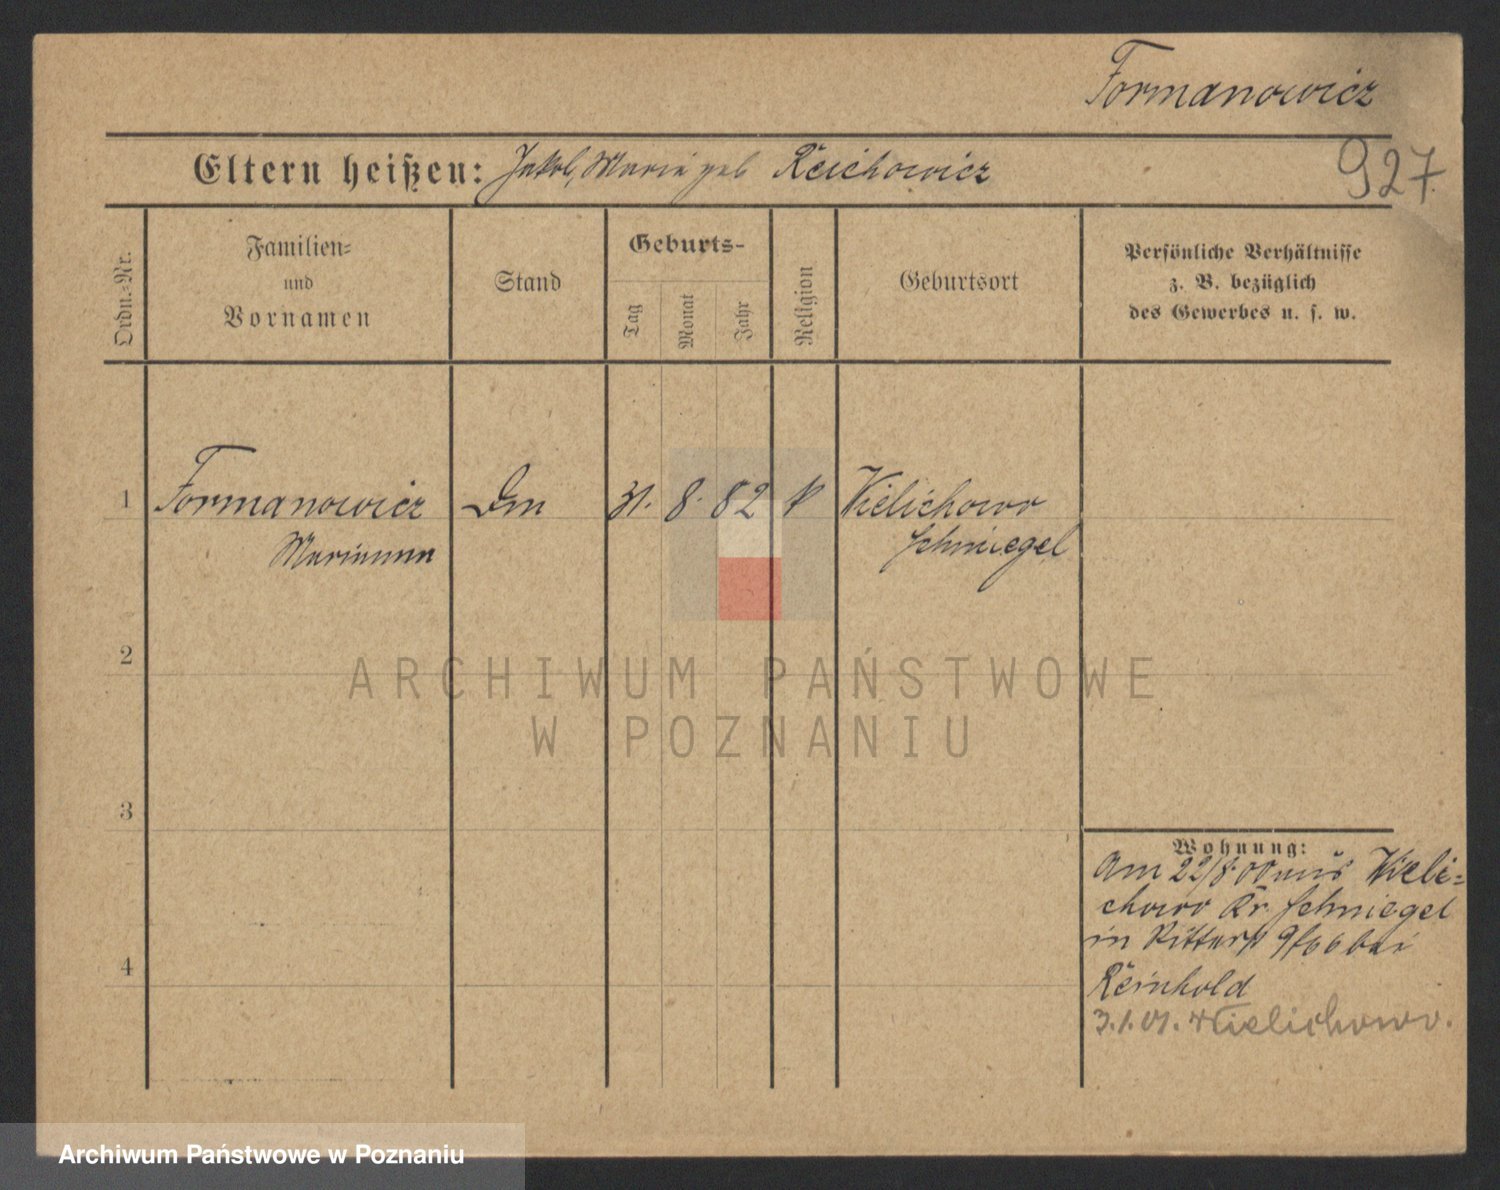 Formanowicz
927
Eltern heißen: Jakob, Marie geb Reichowicz
Ordn.-Nr.
Familien-
und
Vornamen
Stand
Geburts-
Tag
Monat
Jahr
Religion
Geburtsort
Persönliche Verhältnisse
z. B. bezüglich
des Gewerbes u. s. w.
1 Formanowicz Dm 31. 8. 82 k Wielichowo
Marianna Schmiegel
2
3
4
Wohnung:
Am 22/8.00 aus Wieli-
chowo Kr. Schmiegel
in Ritterst bei
Reinhold
3.1.01. Wielichowo.
ARCHIWUM PAŃSTWOWE
W POZNANIU
Archiwum Państwowe w Poznaniu